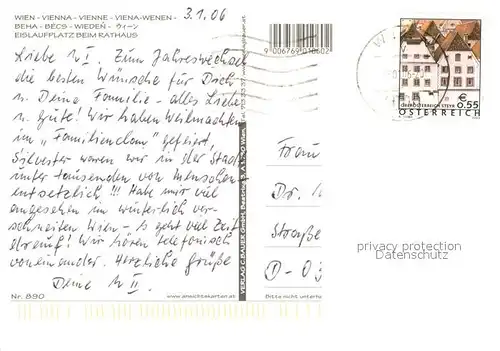 WIEN - VIENNA - VIENNE - VIENA-WENEN -
BEHA - BÉCS - WIEDEŃ - ウィーン
EISLAUFPLATZ BEIM RATHAUS
3.1.06
Liebe N I. Zum Jahreswechsel
die besten Wünsche für Dich
u. Deine Familie - alles Liebe
u. Gute! Wir haben Weihnachten
im "Familienclan" gefeiert,
Silvester waren wir in der Stadt
unter tausenden von Menschen
entsetzlich!!! Habe mir viel
angesehen im winterlich ver-
schneiten Wien - es geht viel Zeit
drauf! Wir hören telefonisch
voneinander. Herzliche Grüße
Deine N II.
Nr. 890
www.ansichtskarten.at
VERLAG C. BAUER GmbH
Wien
9 006769 010602
OBERÖSTERREICH STEYR
€ 0.55
ÖSTERREICH
Frau
Dr.
Straße
D-0
privacy protection
Datenschutz
Bitte nicht unterha